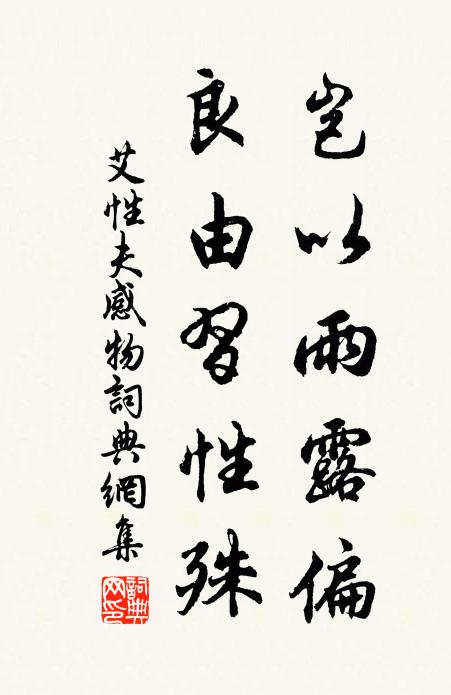 豈以雨露偏
良由習性殊
艾性夫感物詞典網集
詞典網印